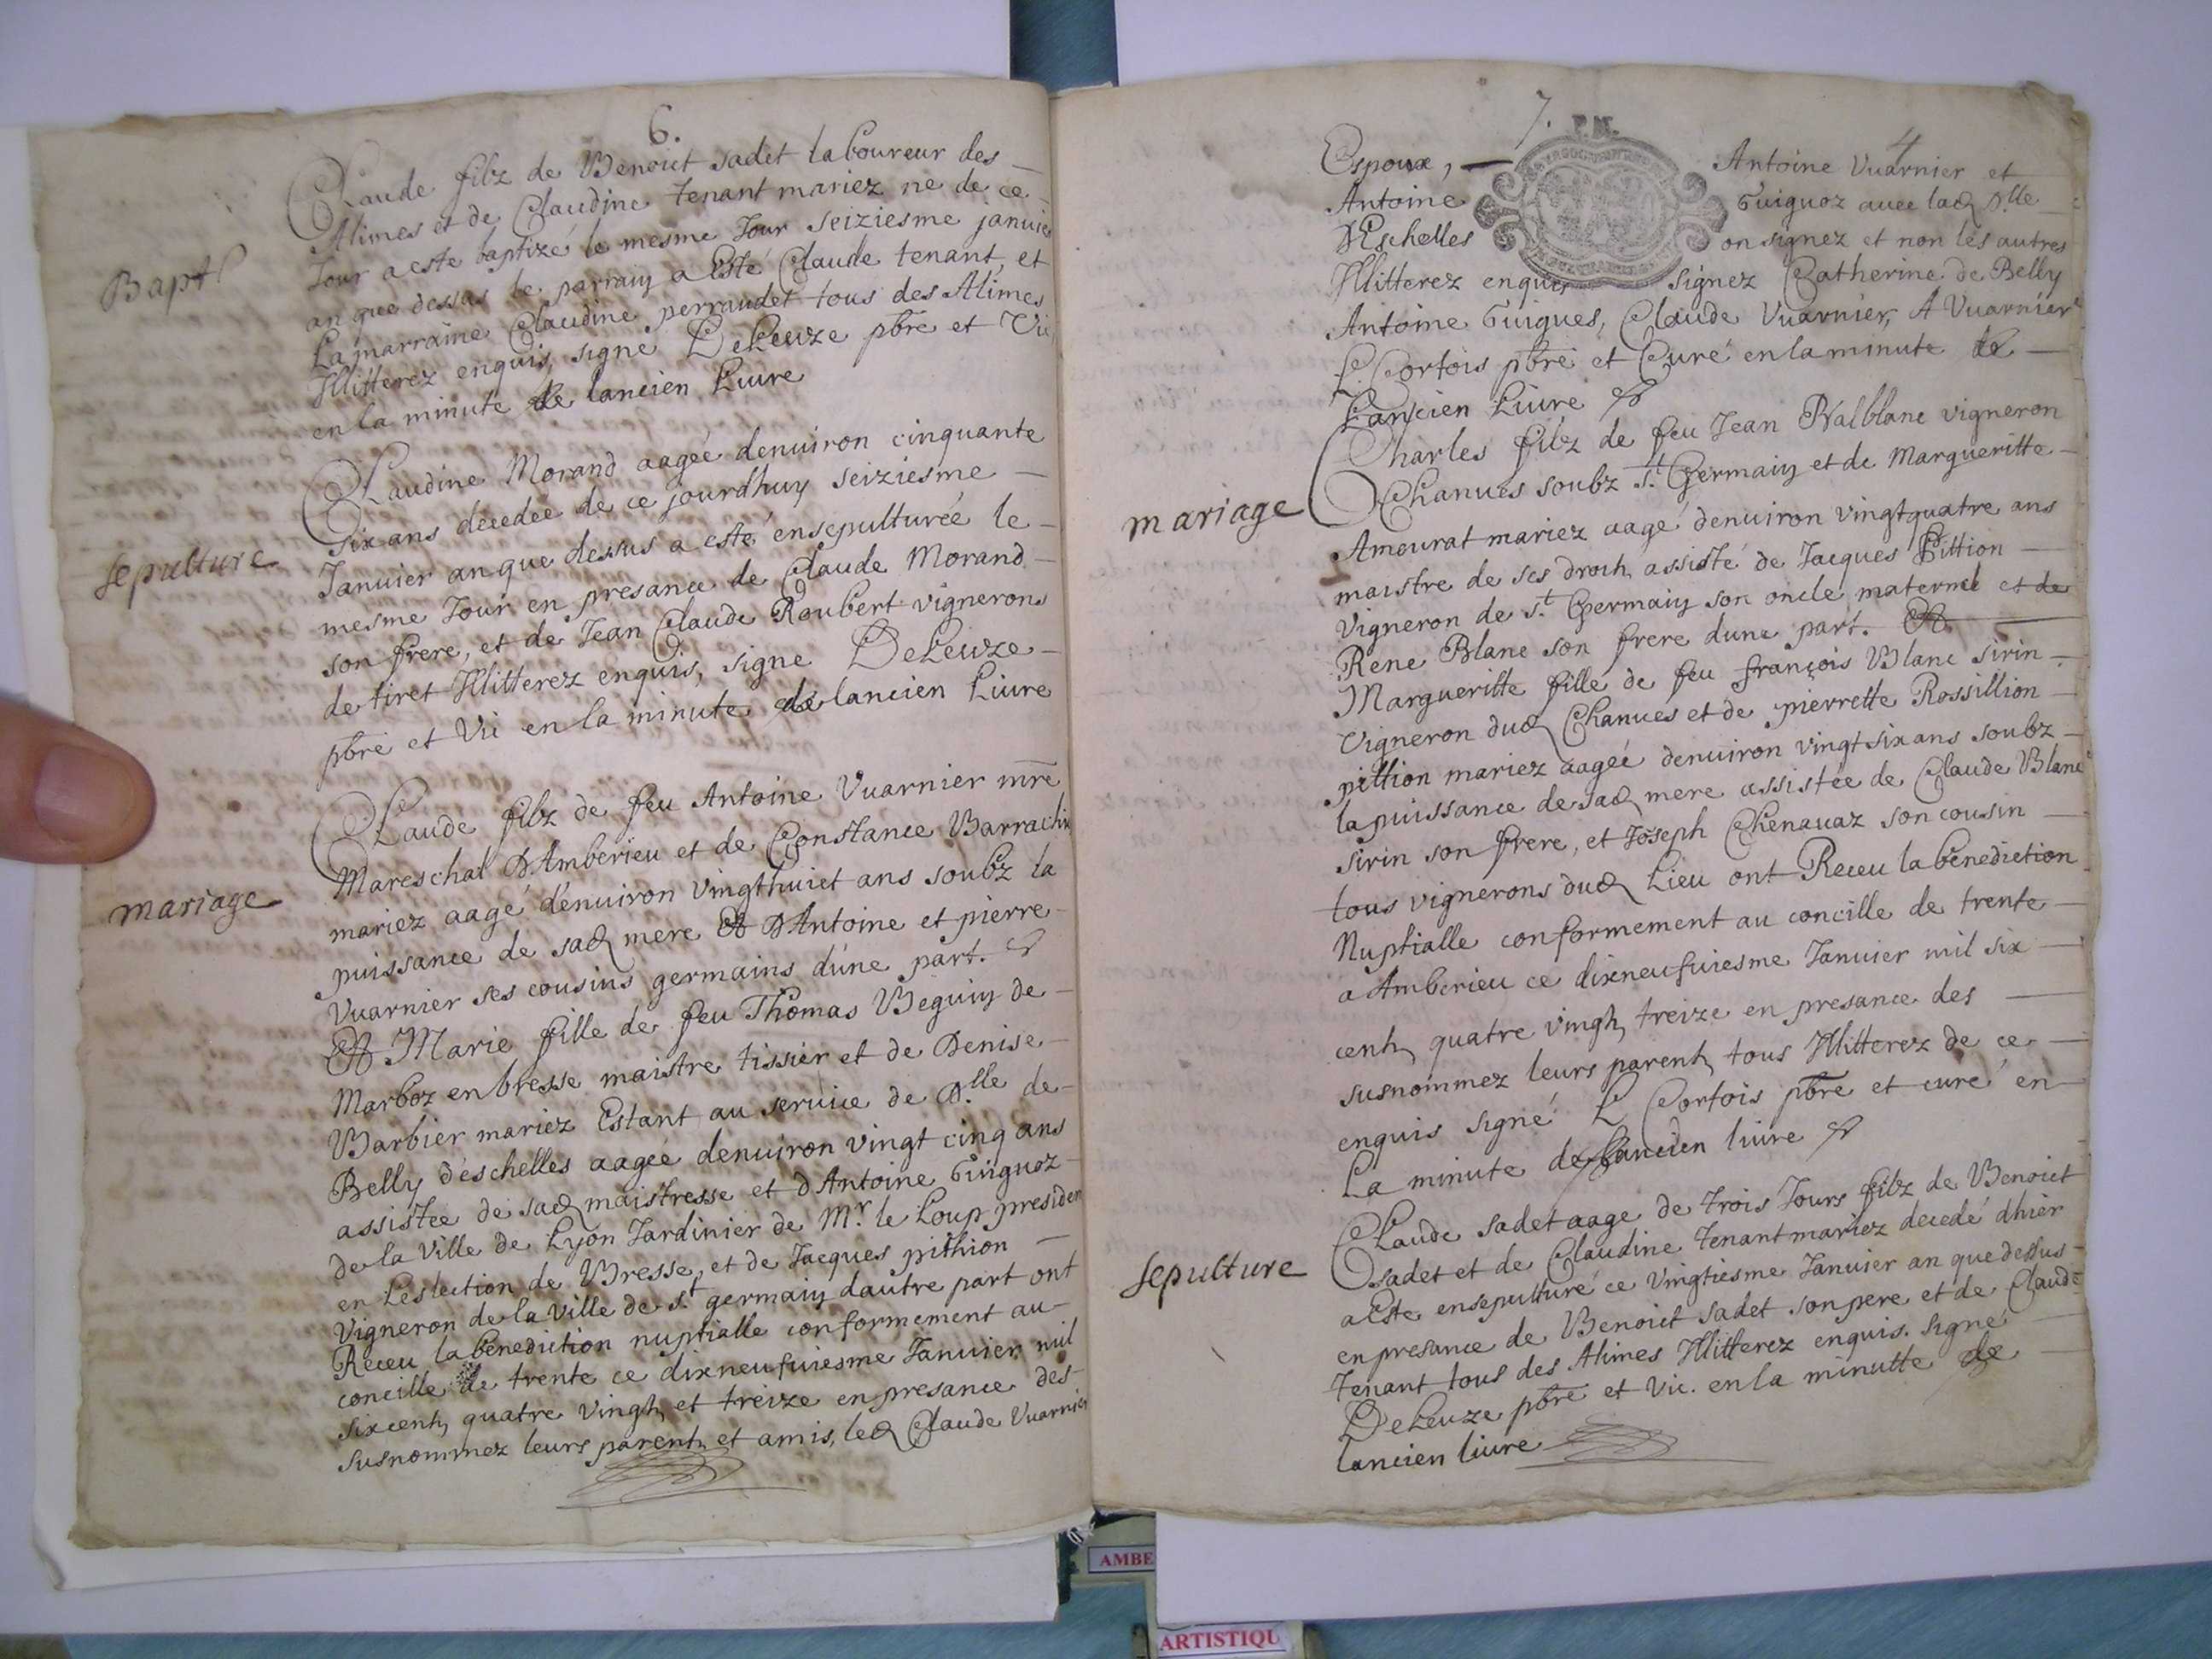 6.
Bapt
Claude filz de Benoict sadet laboureur des
Alimes et de Claudine tenant mariez ne de ce
Jour a este baptizé le mesme Jour seiziesme januier
an que dessus le parrain a Esté Claude tenant, et
La marraine Claudine perraudet tous des Alimes
Illitterez enquis, signé DeLeuze pbre et Vic
en la minute de lancien Liure
sepulture
Claudine Morand aagée denuiron cinquante
six ans decedée de ce jourdhuy seiziesme
Januier an que dessus a esté ensepulturée le
mesme Jour en presance de Claude Morand
son frere, et de Jean Claude Roubert vignerons
de tiret Illitterez enquis, signe DeLeuze
pbre et Vic en la minute de lancien Liure
mariage
Claude filz de feu Antoine Vuarnier mre
Mareschal D'Amberieu et de Constance Barrachin
mariez aagé denuiron vingthuict ans soubz la
puissance de sad mere Et D'Antoine et pierre
Vuarnier ses cousins germains d'une part.
Et Marie fille de feu Thomas Beguin de
Marboz en bresse maistre tissier et de Denise
Barbier mariez Estant au seruice de D.lle de
Belly d'eschelles aagée denuiron vingt cinq ans
assistée de sad maistresse et d'Antoine Guiguoz
de la Ville de Lyon Jardinier de Mr. le Loup presiden
en Leslection de Bresse, et de Jacques pithion
Vigneron de la Ville de st. germain dautre part ont
Receu la benediction nuptialle conformement au
concille de trente ce dixneufuiesme Januier mil
sixcents quatre vingts et treize en presance des
susnommez leurs parents et amis, led Claude Vuarnier
7.
4
P. M.
Espoux, Antoine Vuarnier et
Antoine Guiguoz auec lad D.lle
D'Eschelles on signez et non les autres
Illitterez enquis signez Catherine de Belly
Antoine Guigues, Claude Vuarnier, A Vuarnier
L Cortois pbre et Curé en la minute de
Lancien Liure
mariage
Charles filz de feu Jean Balblanc vigneron
Chanues soubz st. Germain et de Margueritte
Amourat mariez aagé denuiron vingtquatre ans
maistre de ses droits assisté de Jacques Pittion
Vigneron de st. Germain son oncle maternel et de
Rene Blanc son frere dune part. Et
Margueritte fille de feu françois Blanc sirin
Vigneron dud Chanues et de pierrette Rossillion
pittion mariez aagée denuiron vingt six ans soubz
la puissance de sad mere assistée de Claude Blanc
sirin son frere, et Joseph Chenauaz son cousin
tous vignerons dud Lieu ont Receu la benediction
Nuptialle conformement au concille de trente
a Amberieu ce dixneufuiesme Januier mil six
cents quatre vingts treize en presance des
susnommez leurs parents tous Illitterez de ce
enquis signé L Cortois pbre et curé en
La minute de Lancien liure
sepulture
Claude sadet aage de trois Jours filz de Benoict
sadet et de Claudine tenant mariez decedé dhier
a Este ensepulturé ce vingtiesme Januier an que dessus
en presance de Benoict sadet son pere et de Claude
tenant tous des Alimes Illitterez enquis. signé
DeLeuze pbre et Vic. en la minutte de
lancien liure
AMBE
ARTISTIQU